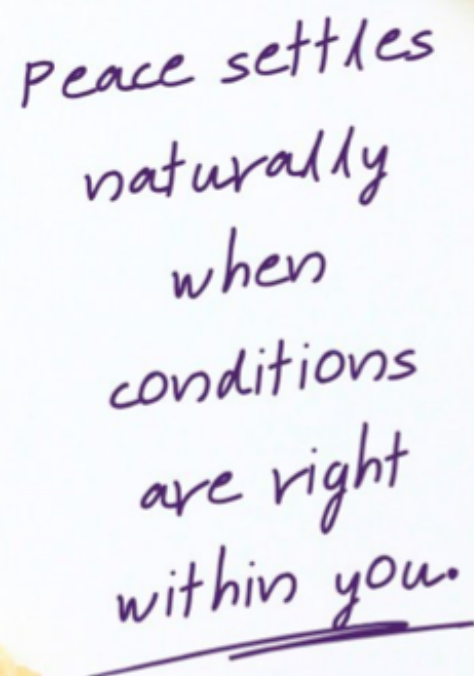 Peace settles
naturally
when
conditions
are right
within you.